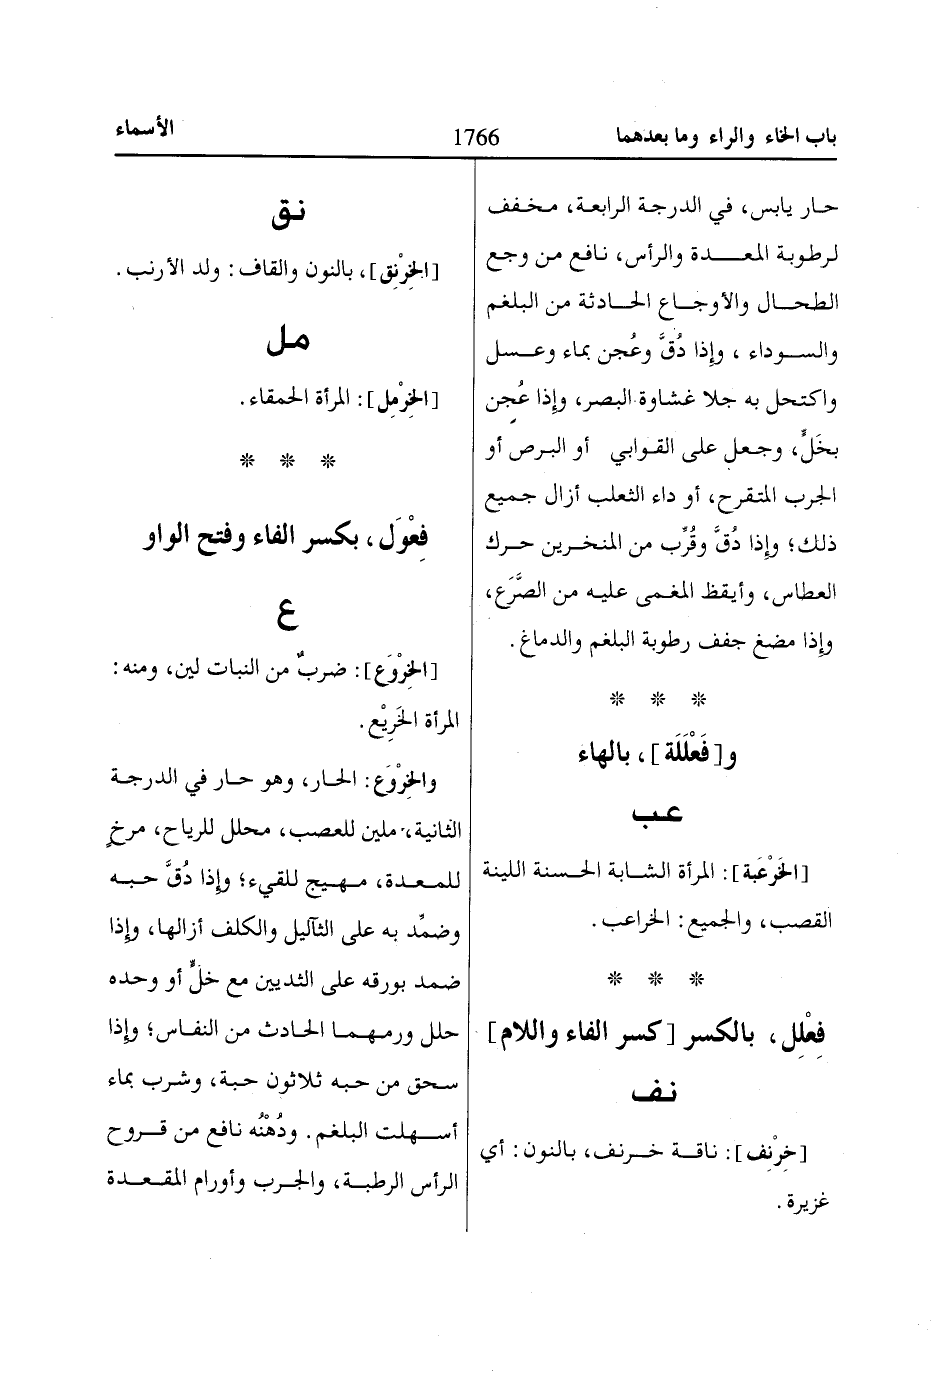 باب الخاء والراء وما بعدهما 1766 الأسماء
حار يابس، في الدرجة الرابعة، مخفف
لرطوبة المعدة والرأس، نافع من وجع
الطحال والأوجاع الحادثة من البلغم
والسوداء ، وإذا دُقَّ وعُجن بماء وعسل
واكتحل به جلا غشاوة البصر، وإذا عُجن
بخَلٍّ، وجعل على القوابي أو البرص أو
الجرب المتقرح، أو داء الثعلب أزال جميع
ذلك؛ وإذا دُقَّ وقُرِّب من المنخرين حرك
العطاس، وأيقظ المغمى عليه من الصَّرَع،
وإذا مضغ جفف رطوبة البلغم والدماغ.
* * *
و[فَعْلَلَة]، بالهاء
عب
[الخَرْعَبة]: المرأة الشابة الحسنة اللينة
القصب، والجميع: الخراعب.
* * *
فِعْلِل، بالكسر [كسر الفاء واللام]
نف
[خِرْنِف]: ناقة خرنف، بالنون: أي
غزيرة.
نق
[الخِرْنِق]، بالنون والقاف: ولد الأرنب.
مل
[الخِرْمِل]: المرأة الحمقاء.
* * *
فِعْوَل، بكسر الفاء وفتح الواو
ع
[الخِرْوَع]: ضربٌ من النبات لين، ومنه:
المرأة الخَرِيْع.
والخِرْوَع: الحار، وهو حار في الدرجة
الثانية، ملين للعصب، محلل للرياح، مرخٍ
للمعدة، مهيج للقيء؛ وإذا دُقَّ حبه
وضمِّد به على الثآليل والكلف أزالها، وإذا
ضمد بورقه على الثديين مع خلٍّ أو وحده
حلل ورمهما الحادث من النفاس؛ وإذا
سحق من حبه ثلاثون حبة، وشرب بماء
أسهلت البلغم. ودُهْنُه نافع من قروح
الرأس الرطبة، والجرب وأورام المقعدة